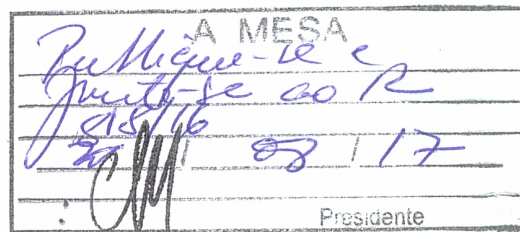 A MESA
Publique-se e
Junte-se ao R
815/16
/ 08 / 17
Presidente